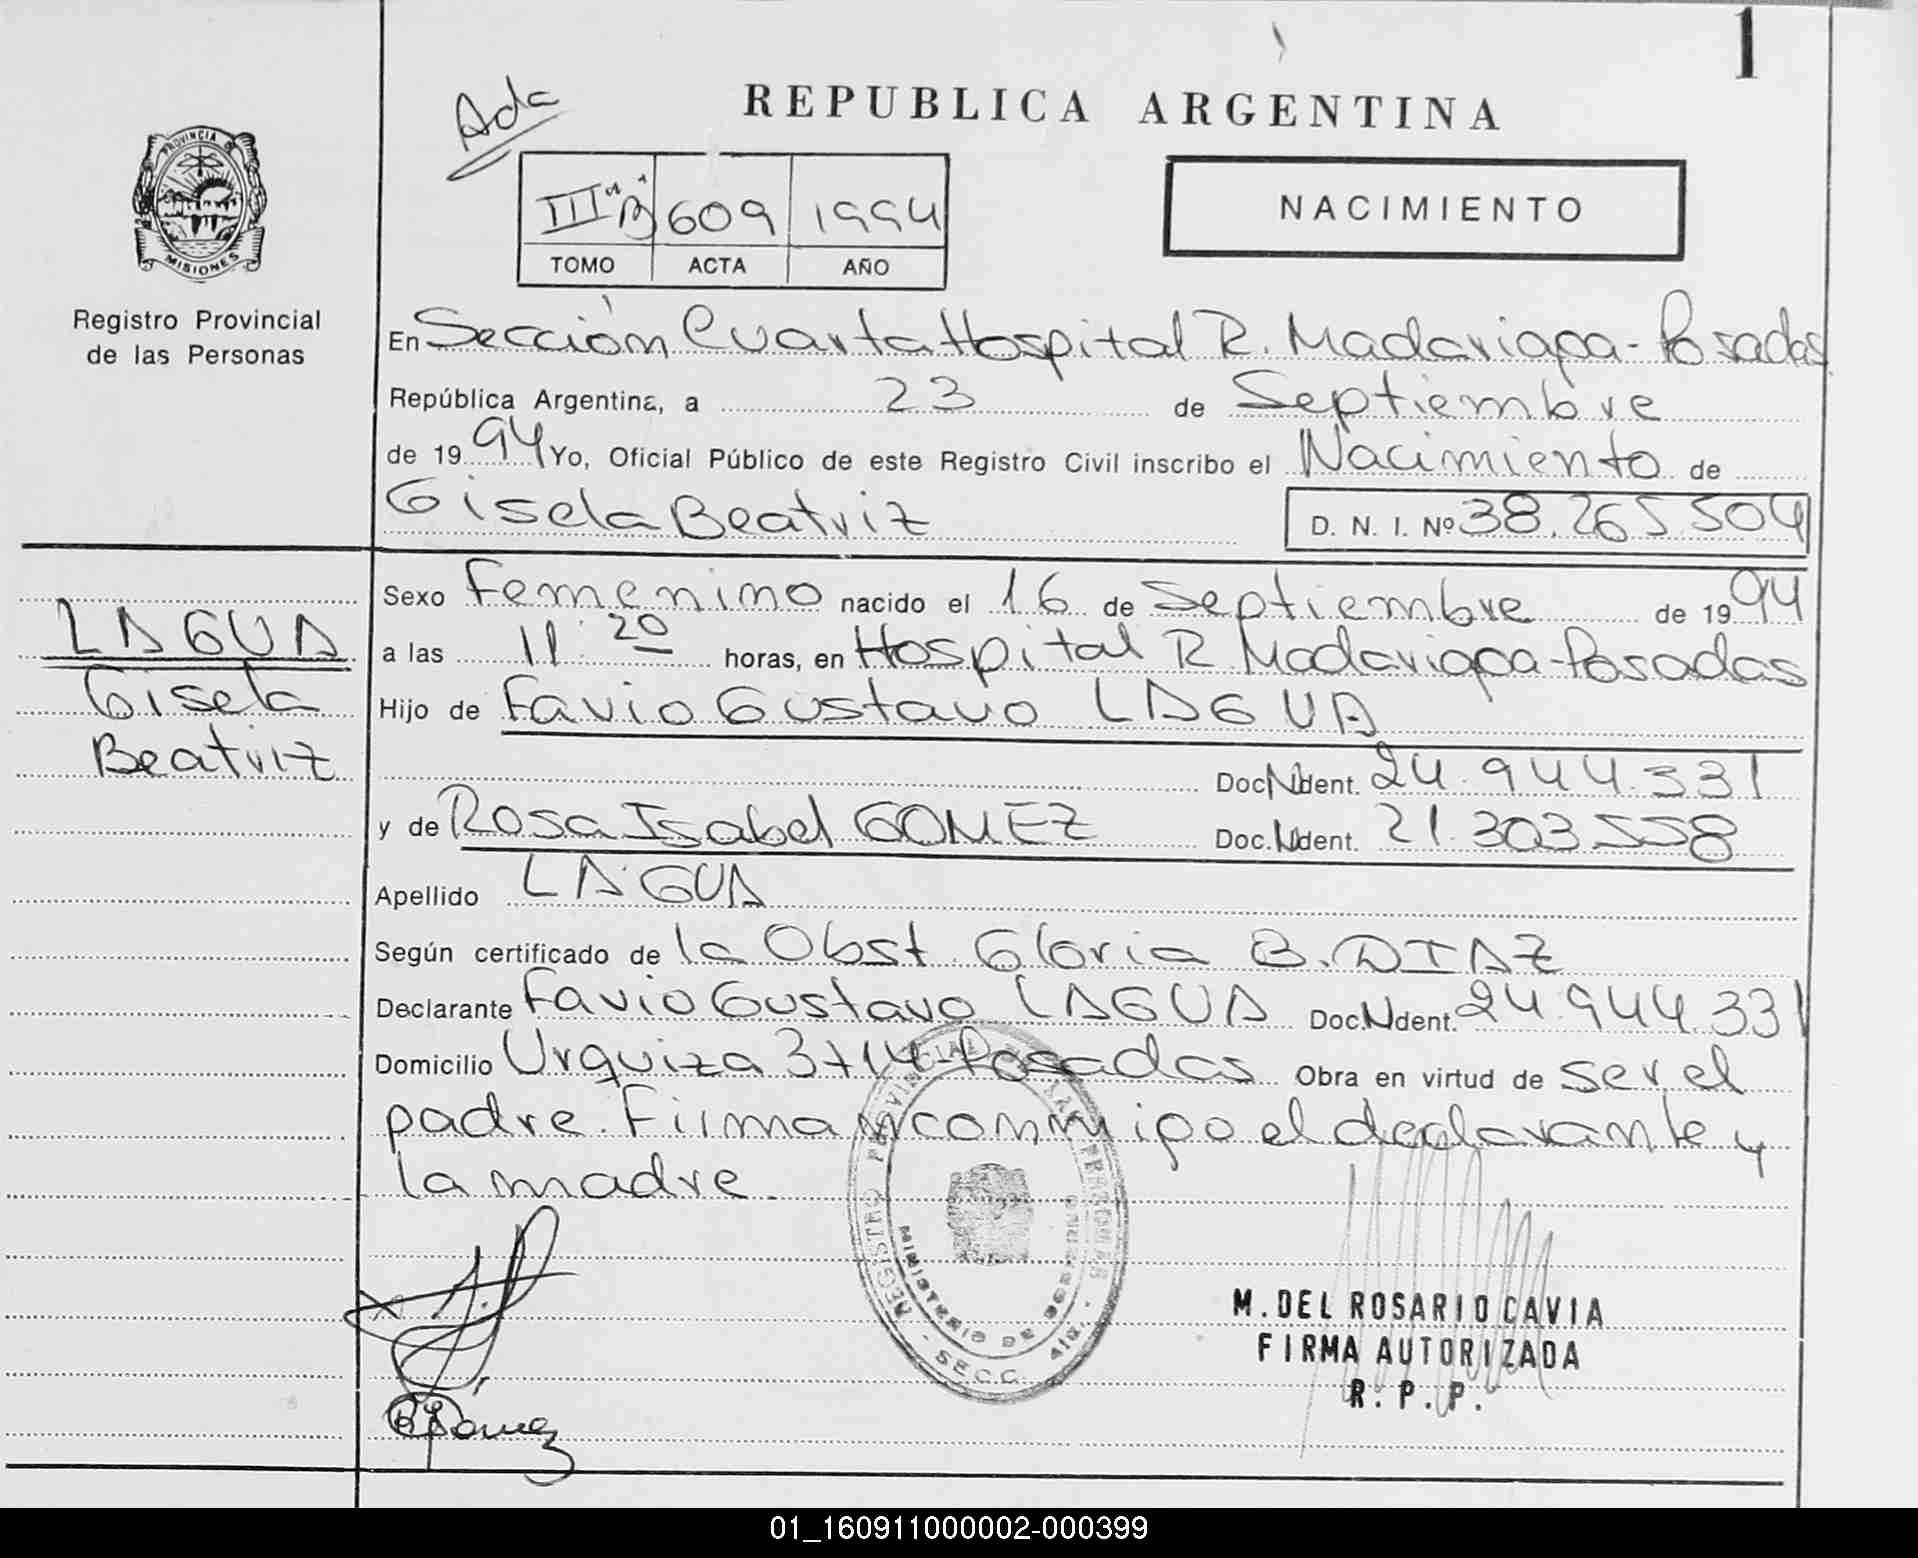 1
Ada
REPUBLICA ARGENTINA
PROVINCIA DE
MISIONES
Registro Provincial
de las Personas
III "B" 609 1994
TOMO ACTA AÑO
NACIMIENTO
En Sección Cuarta Hospital R. Madariaga - Posadas
República Argentina, a 23 de Septiembre
de 1994 Yo, Oficial Público de este Registro Civil inscribo el Nacimiento de
Gisela Beatriz D. N. I. Nº 38.265.504
LAGUA
Gisela
Beatriz
Sexo Femenino nacido el 16 de Septiembre de 1994
a las 11:20 horas, en Hospital R. Madariaga - Posadas
Hijo de Favio Gustavo LAGUA
Doc. Ident. 24.944.331
y de Rosa Isabel GOMEZ Doc. Ident. 21.303.558
Apellido LAGUA
Según certificado de la Obst. Gloria B. DIAZ
Declarante Favio Gustavo LAGUA Doc. Ident. 24.944.331
Domicilio Urquiza 3714 Posadas Obra en virtud de ser el
padre. Firman conmigo el declarante y
la madre.
REGISTRO PROVINCIAL DE LAS PERSONAS
MINISTERIO DE
SECC. 4ta.
M. DEL ROSARIO CAVIA
FIRMA AUTORIZADA
R. P. P.
01_160911000002-000399